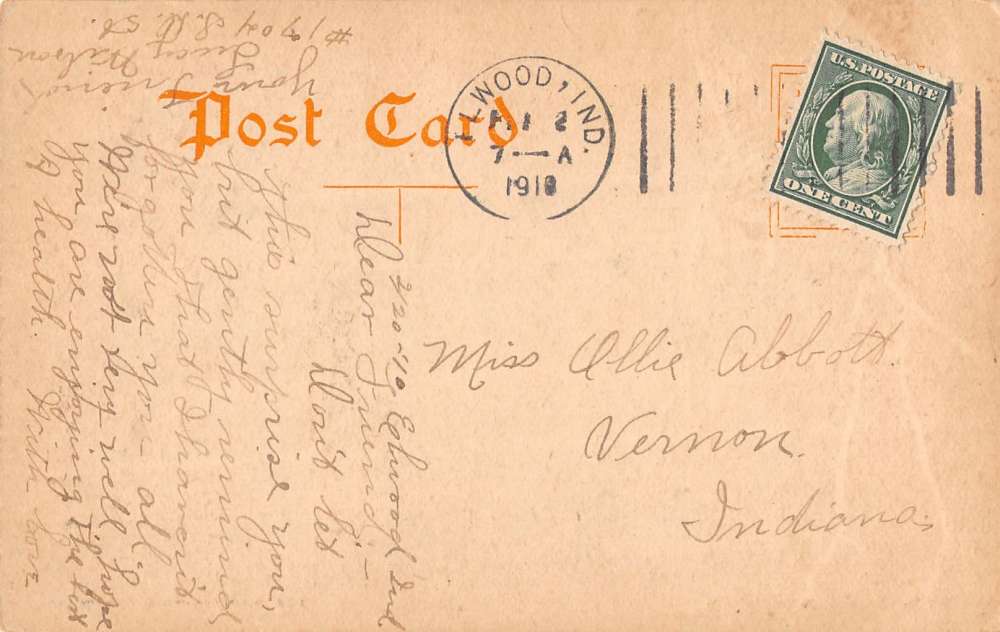 Post Card
ELWOOD, IND.
7—A
1910
U.S. POSTAGE
ONE CENT
Miss Ollie Abbott.
Vernon.
Indiana.
2/20-'10 Elwood Ind
Dear Friend-
Don't let
this surprise you,
but gently remind
you that I haven't
forgotten you - all
Hels not very well, hope
you are enjoying the best
of health. With love
Your Friend
Lucy
#1704 S. St.